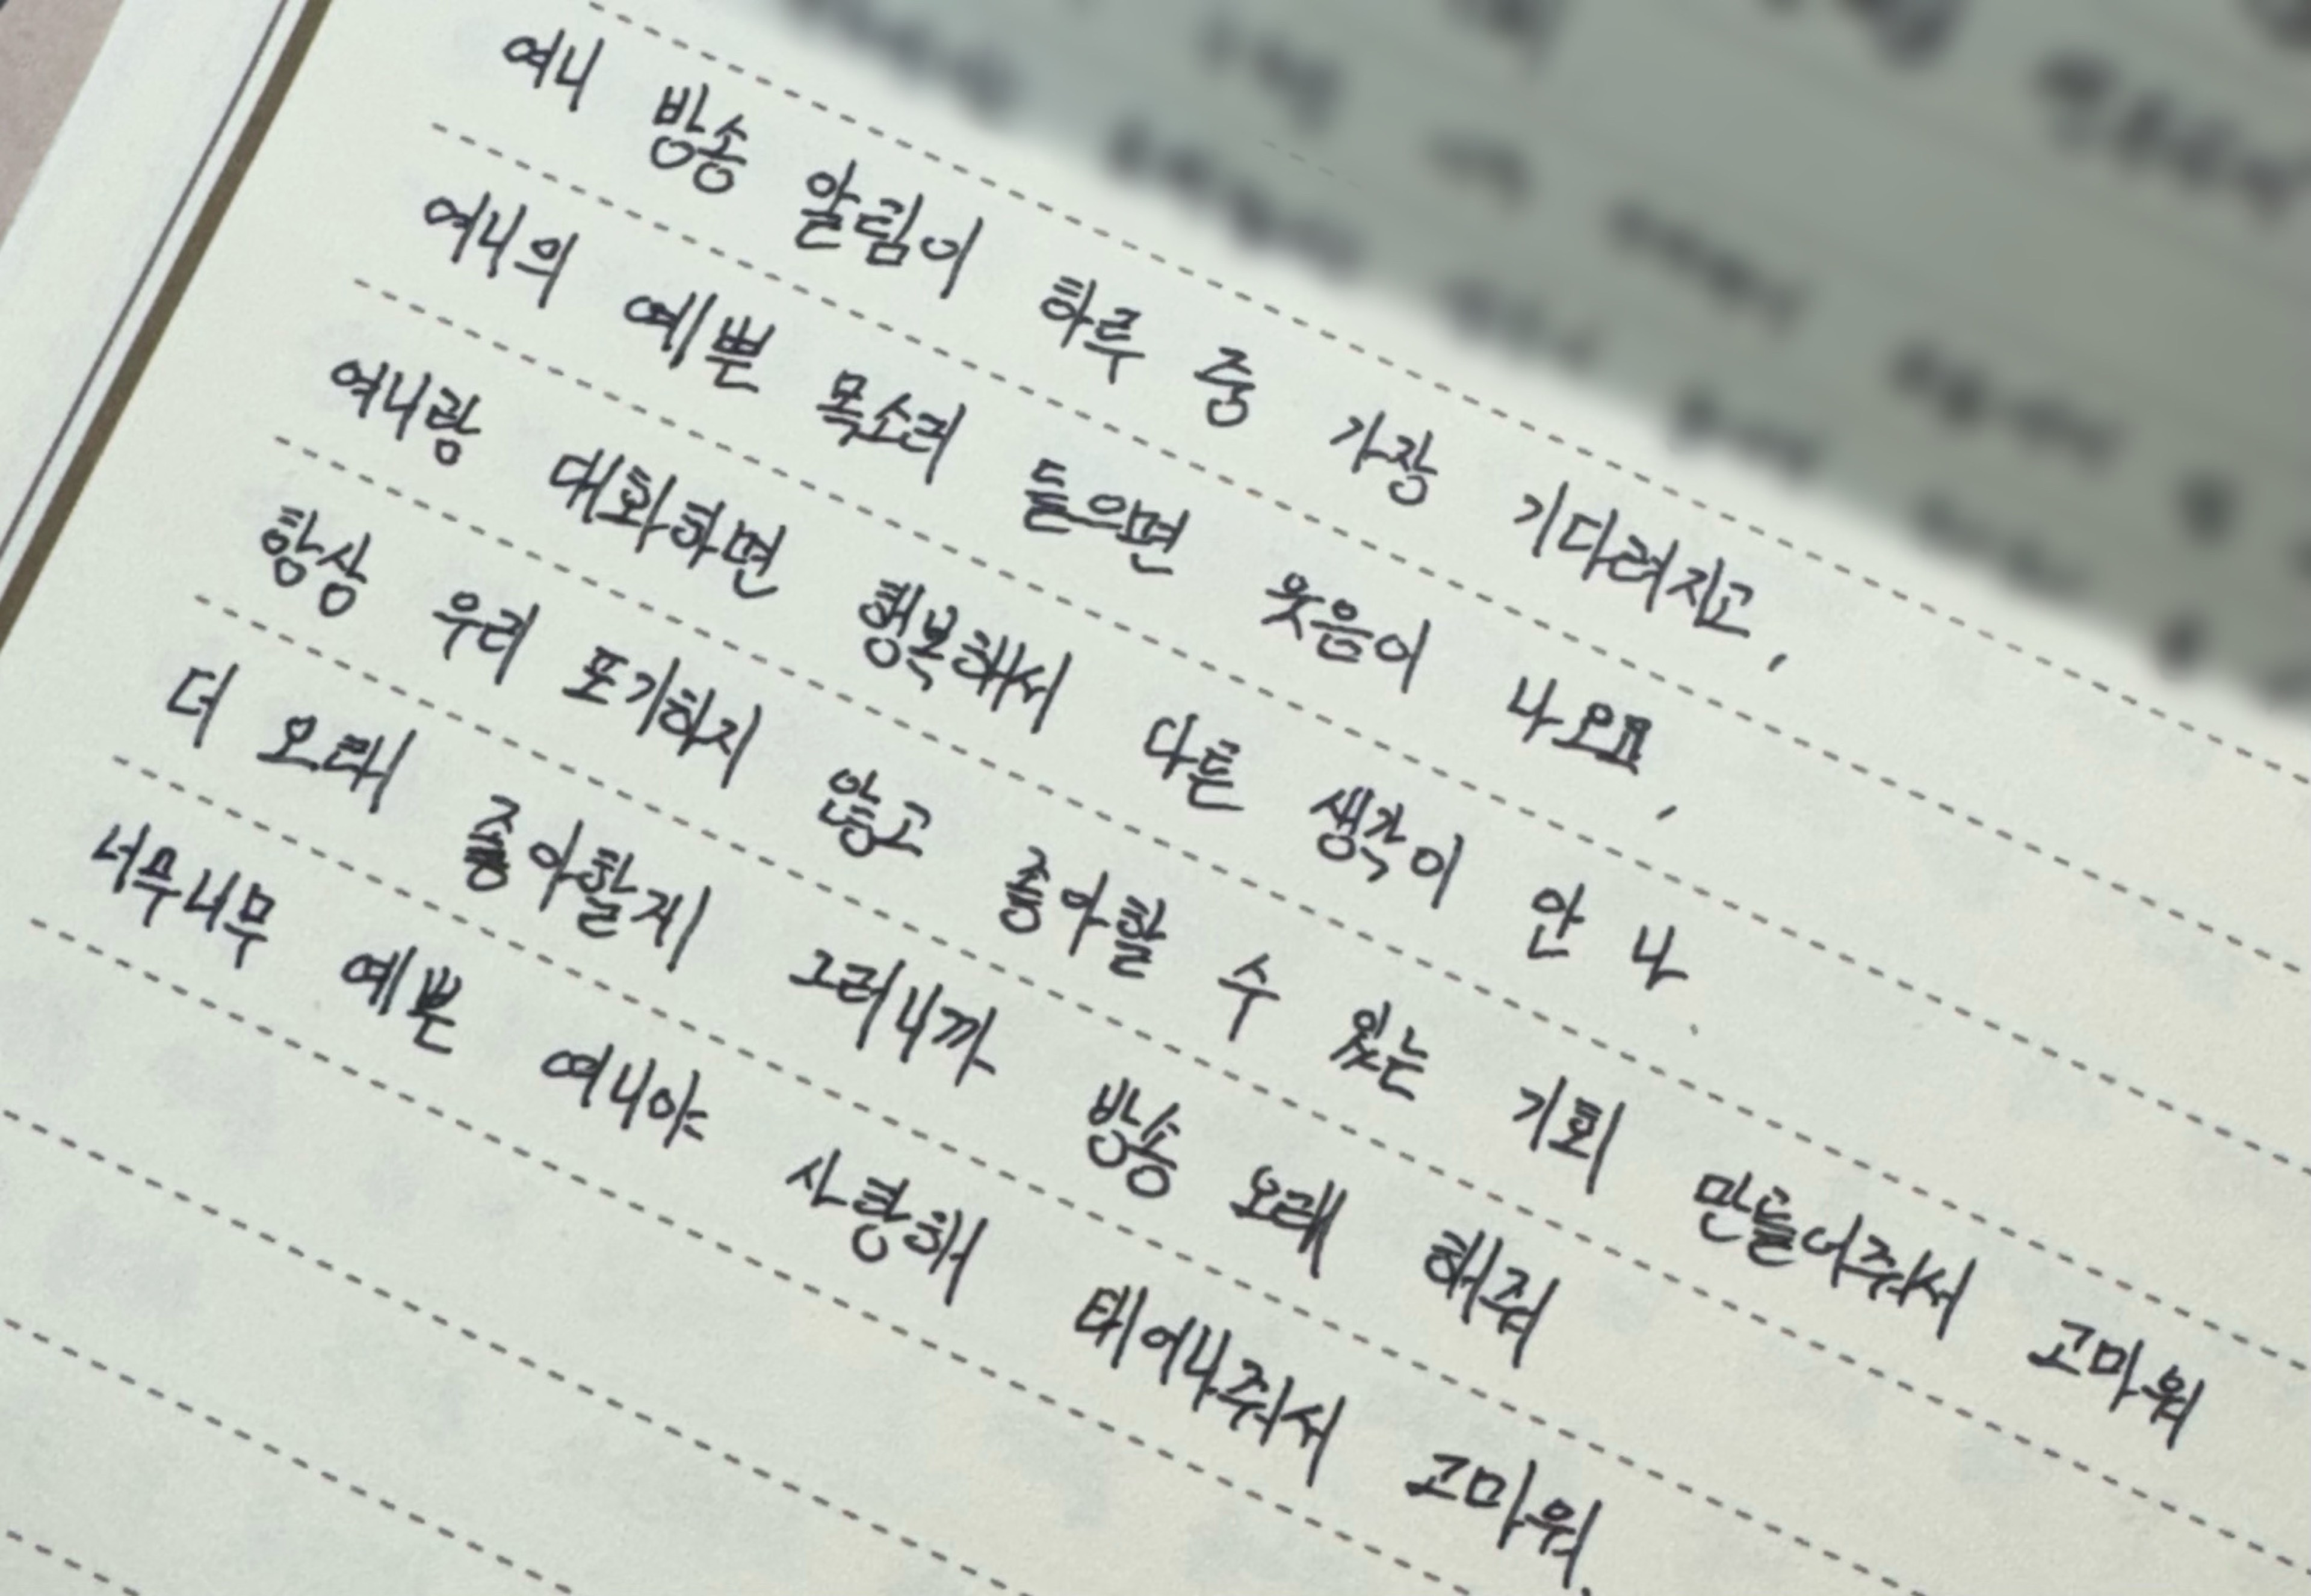 여니 방송 알림이 하루 중 가장 기다려지고,
여니의 예쁜 목소리 들으면 웃음이 나요,
여니랑 대화하면 행복해서 다른 생각이 안 나.
항상 우리 포기하지 않고 좋아할 수 있는 기회 만들어줘서 고마워
더 오래 좋아할게 그러니까 방송 오래 해줘
너무너무 예쁜 여니야 사랑해 태어나줘서 고마워.